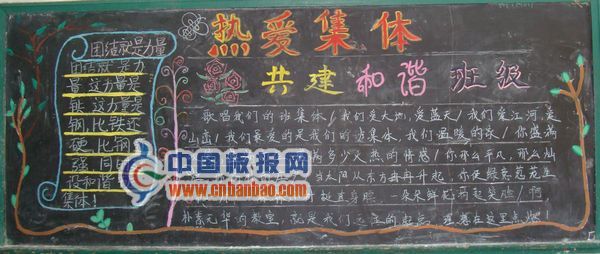 热爱集体
共建和谐班级
团结就是力量
团结就是力
量这力量是
铁这力量是
钢,比铁还
硬比钢
强同
设和谐
集体!
歌唱我们的班集体/我们爱大地,爱蓝天/我们爱江河,是
山峦/我们最爱的是我们的班集体,我们温暖的家/你盛满
多少火热的情感/你那么平凡,那么灿
当太阳从东方冉冉升起,你使绿茵茵花
直身躯 一朵朵鲜 起笑脸/啊
朴素无华的教室,就是我们 的 理想在这里点燃!
中国板报网
www.cnbanbao.com